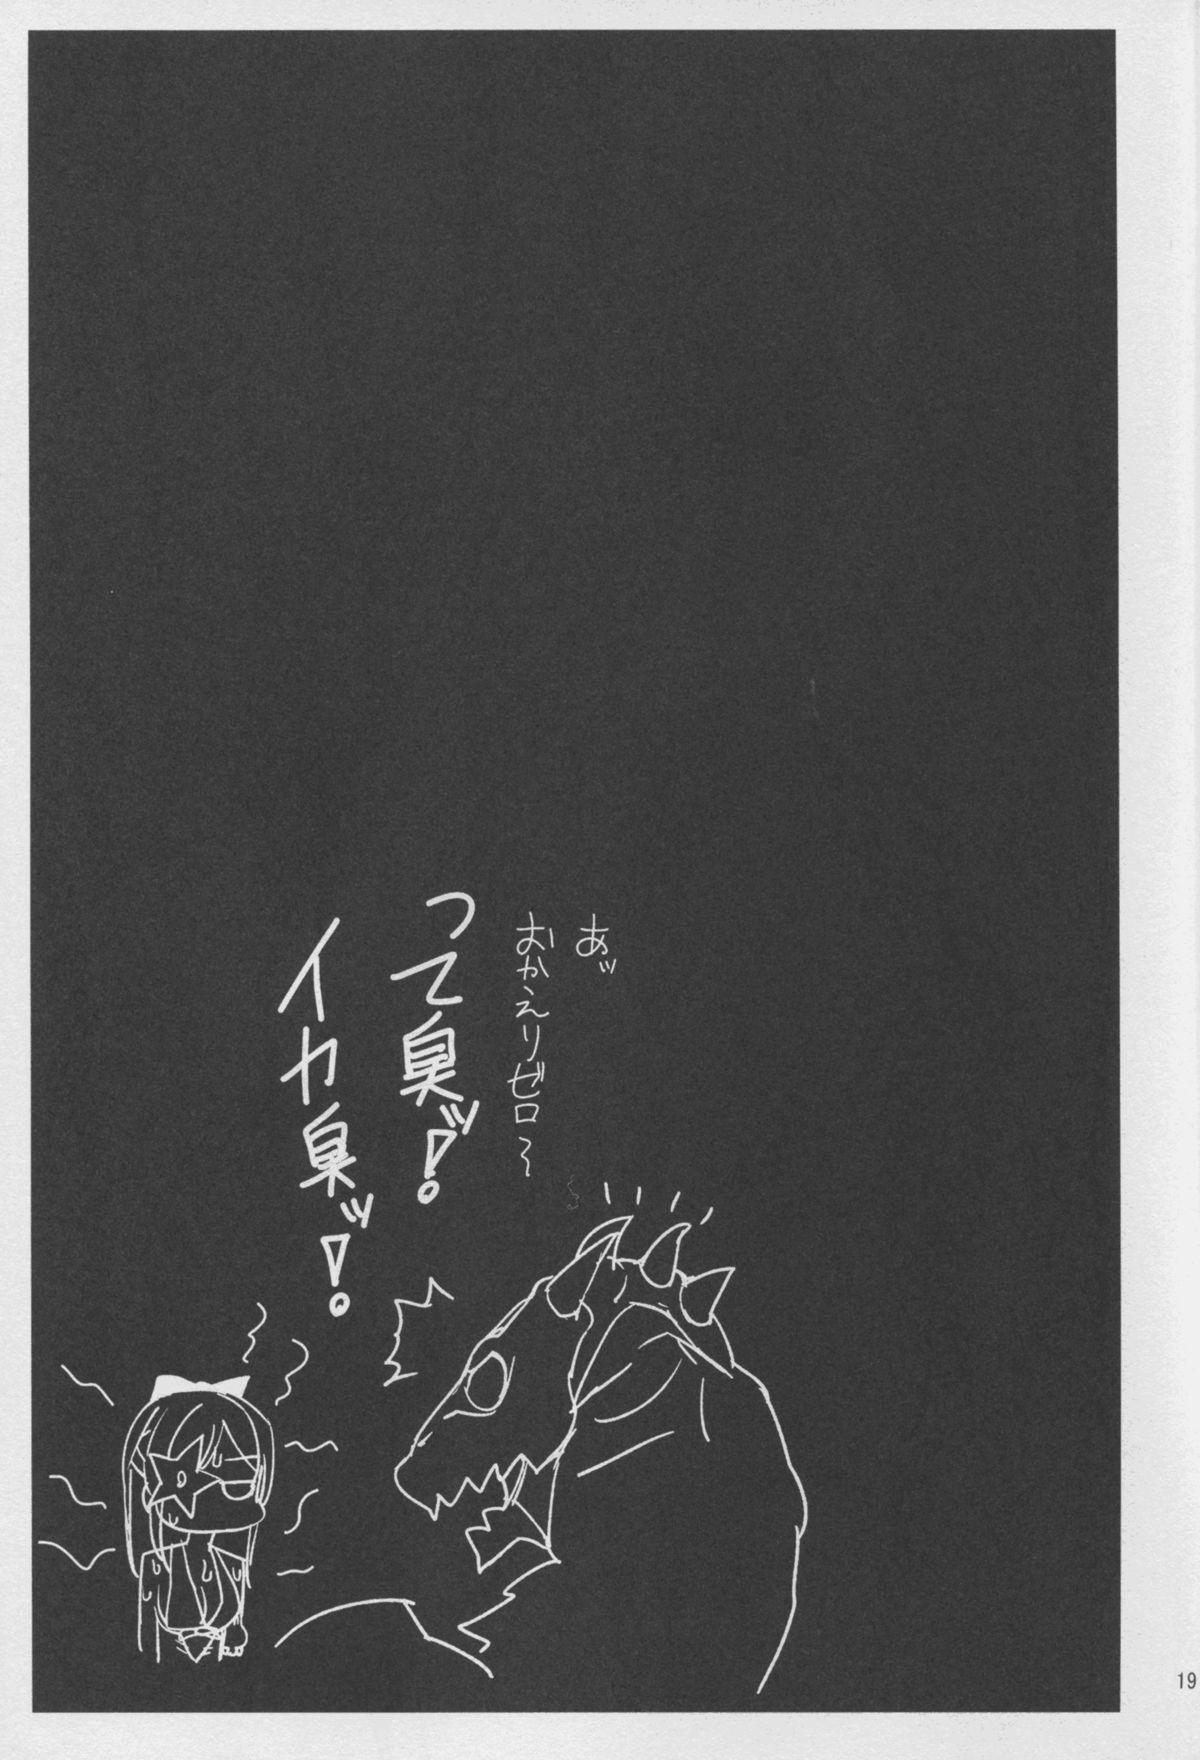 あッ
おかえりゼロ〜
って臭ッ!
イカ臭ッ!
19